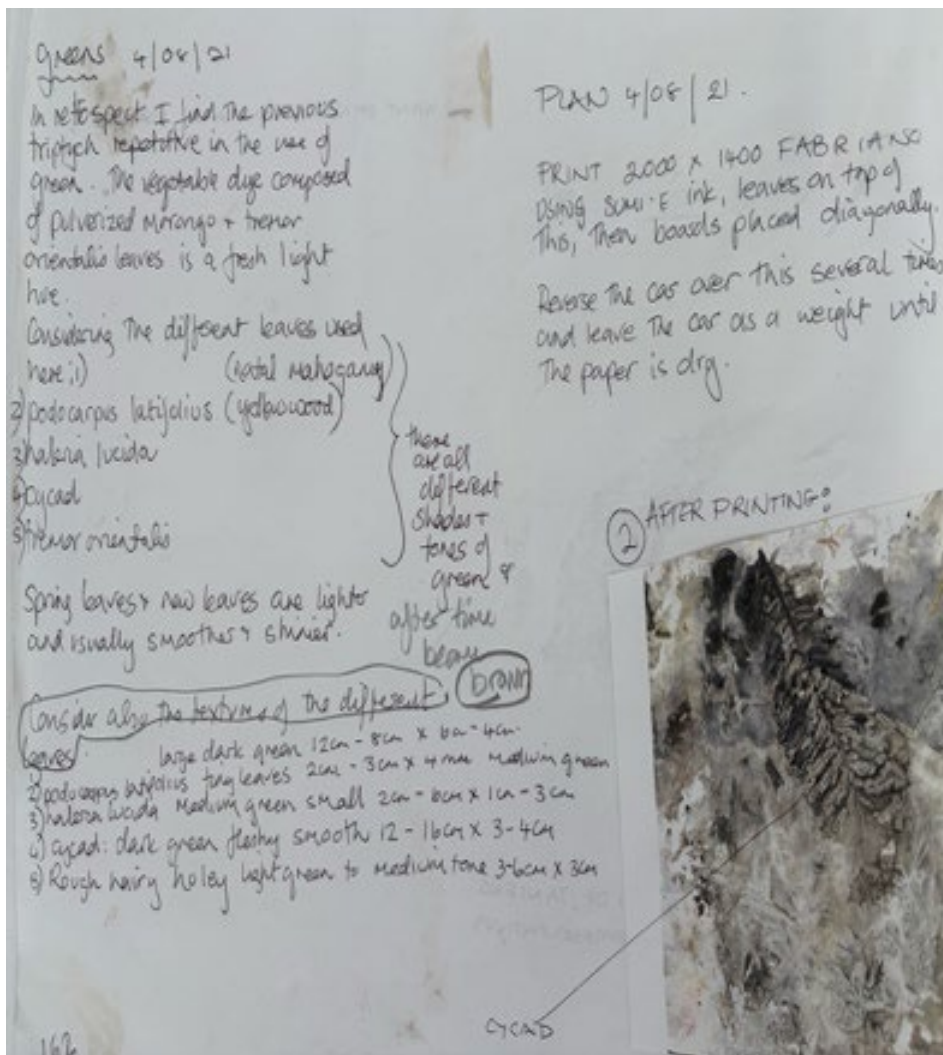 greens 4/08/21
In retospect I find the previous
triptych repetative in the use of
green. The vegetable dye composed
of pulverized Morongo + tremor
orientalis leaves is a fresh light
hue.
Considering the different leaves used
here; 1) (natal mahogany)
2) podocarpus latifolius (yellowwood)
3) haleria lucida
4) cycad
5) tremor orientalis
there
are all
different
shades +
tones of
green &
after time
brown
Spring leaves & new leaves are lighter
and usually smoother & shinier.
Consider also the textures of the different
leaves.
large dark green 12cm - 8cm x 6cm - 4cm.
2) podocarpus latifolius tiny leaves 2cm - 3cm x 4mm medium green
3) haleria lucida medium green small 2cm - 6cm x 1cm - 3cm
4) cycad: dark green fleshy smooth 12 - 16cm x 3 - 4cm
5) Rough hairy holey light green to medium tone 3-6cm x 3cm
162
PLAN 4/08/21.
PRINT 2000 x 1400 FABRIANO
USING SUMI-E ink, leaves on top of
this, then boards placed diagonally.
Reverse the car over this several times
and leave the car as a weight until
the paper is dry.
2 AFTER PRINTING:
CYCAD